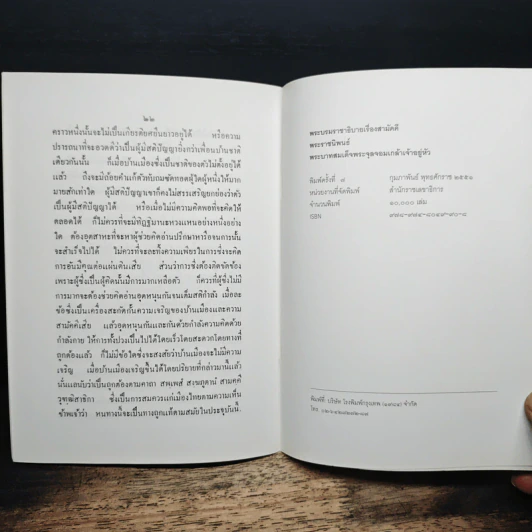 ๒๒
คราวหนึ่งนั้นจะไม่เป็นเกียรติยศยืนยาวอยู่ได้ หรือความ
ปรารถนาที่จะอวดตัวว่าเป็นผู้มีสติปัญญายิ่งกว่าเพื่อนบ้านชาติ
เดียวกันนั้น ก็เมื่อบ้านเมืองซึ่งเป็นชาติของตัวไม่ตั้งอยู่ได้
แล้ว ถึงจะมีถ้อยคำแก้ตัวทับถมซัดทอดผู้ใดผู้หนึ่งให้มาก
มายสักเท่าใด ผู้มีสติปัญญาเขาก็คงไม่สรรเสริญยกย่องว่าตัว
เป็นผู้มีสติปัญญาได้ หรือเมื่อไม่มีความคิดพอที่จะคิดให้
ตลอดได้ ก็ไม่ควรที่จะมีทิฏฐิมานะหวงแหนอย่างหนึ่งอย่าง
ใด ต้องอุตสาหะที่จะหาผู้ช่วยคิดอ่านปรึกษาหารือจนการนั้น
จะสำเร็จไปได้ ไม่ควรที่จะละทิ้งความเพียรในการซึ่งจะคิด
การอันมีคุณต่อแผ่นดินเสีย ส่วนว่าการซึ่งต้องติดขัดข้อง
เพราะผู้ซึ่งเป็นผู้คิดนั้นมีการมากเหลือตัว ก็ควรที่ผู้ซึ่งไม่มี
การมากจะต้องช่วยคิดอ่านอุดหนุนกันจนเต็มสติกำลัง เมื่อละ
ข้อซึ่งเป็นเครื่องสะกัดกั้นความเจริญของบ้านเมืองและความ
สามัคคีเสีย แล้วอุดหนุนกันและกันด้วยกำลังความคิดด้วย
กำลังกาย ให้การทั้งปวงเป็นไปได้โดยเร็วโดยสะดวกโดยทางที่
ถูกต้องแล้ว ก็ไม่มีข้อใดซึ่งจะสงสัยว่าบ้านเมืองจะไม่มีความ
เจริญ เมื่อบ้านเมืองเจริญขึ้นได้โดยปริยายที่กล่าวมานี้แล้ว
นั่นแลนับว่าเป็นถูกต้องตามคาถา สพฺเพสํ สงฺฆภูตานํ สามคฺคี
วุฑฺฒิสาธิกา ซึ่งเป็นการสมควรแก่เมืองไทยตามความเห็น
ข้าพเจ้าว่า หนทางนี้จะเป็นทางถูกแท้ตามสมัยในประจุบันนี้.
พระบรมราชาธิบายเรื่องสามัคคี
พระราชนิพนธ์
พระบาทสมเด็จพระจุลจอมเกล้าเจ้าอยู่หัว
พิมพ์ครั้งที่ ๙ กุมภาพันธ์ พุทธศักราช ๒๕๕๑
หน่วยงานที่จัดพิมพ์ สำนักราชเลขาธิการ
จำนวนพิมพ์ ๑๐,๐๐๐ เล่ม
ISBN
พิมพ์ที่ บริษัท โรงพิมพ์กรุงเทพ (๑๙๘๔) จำกัด
โทร.